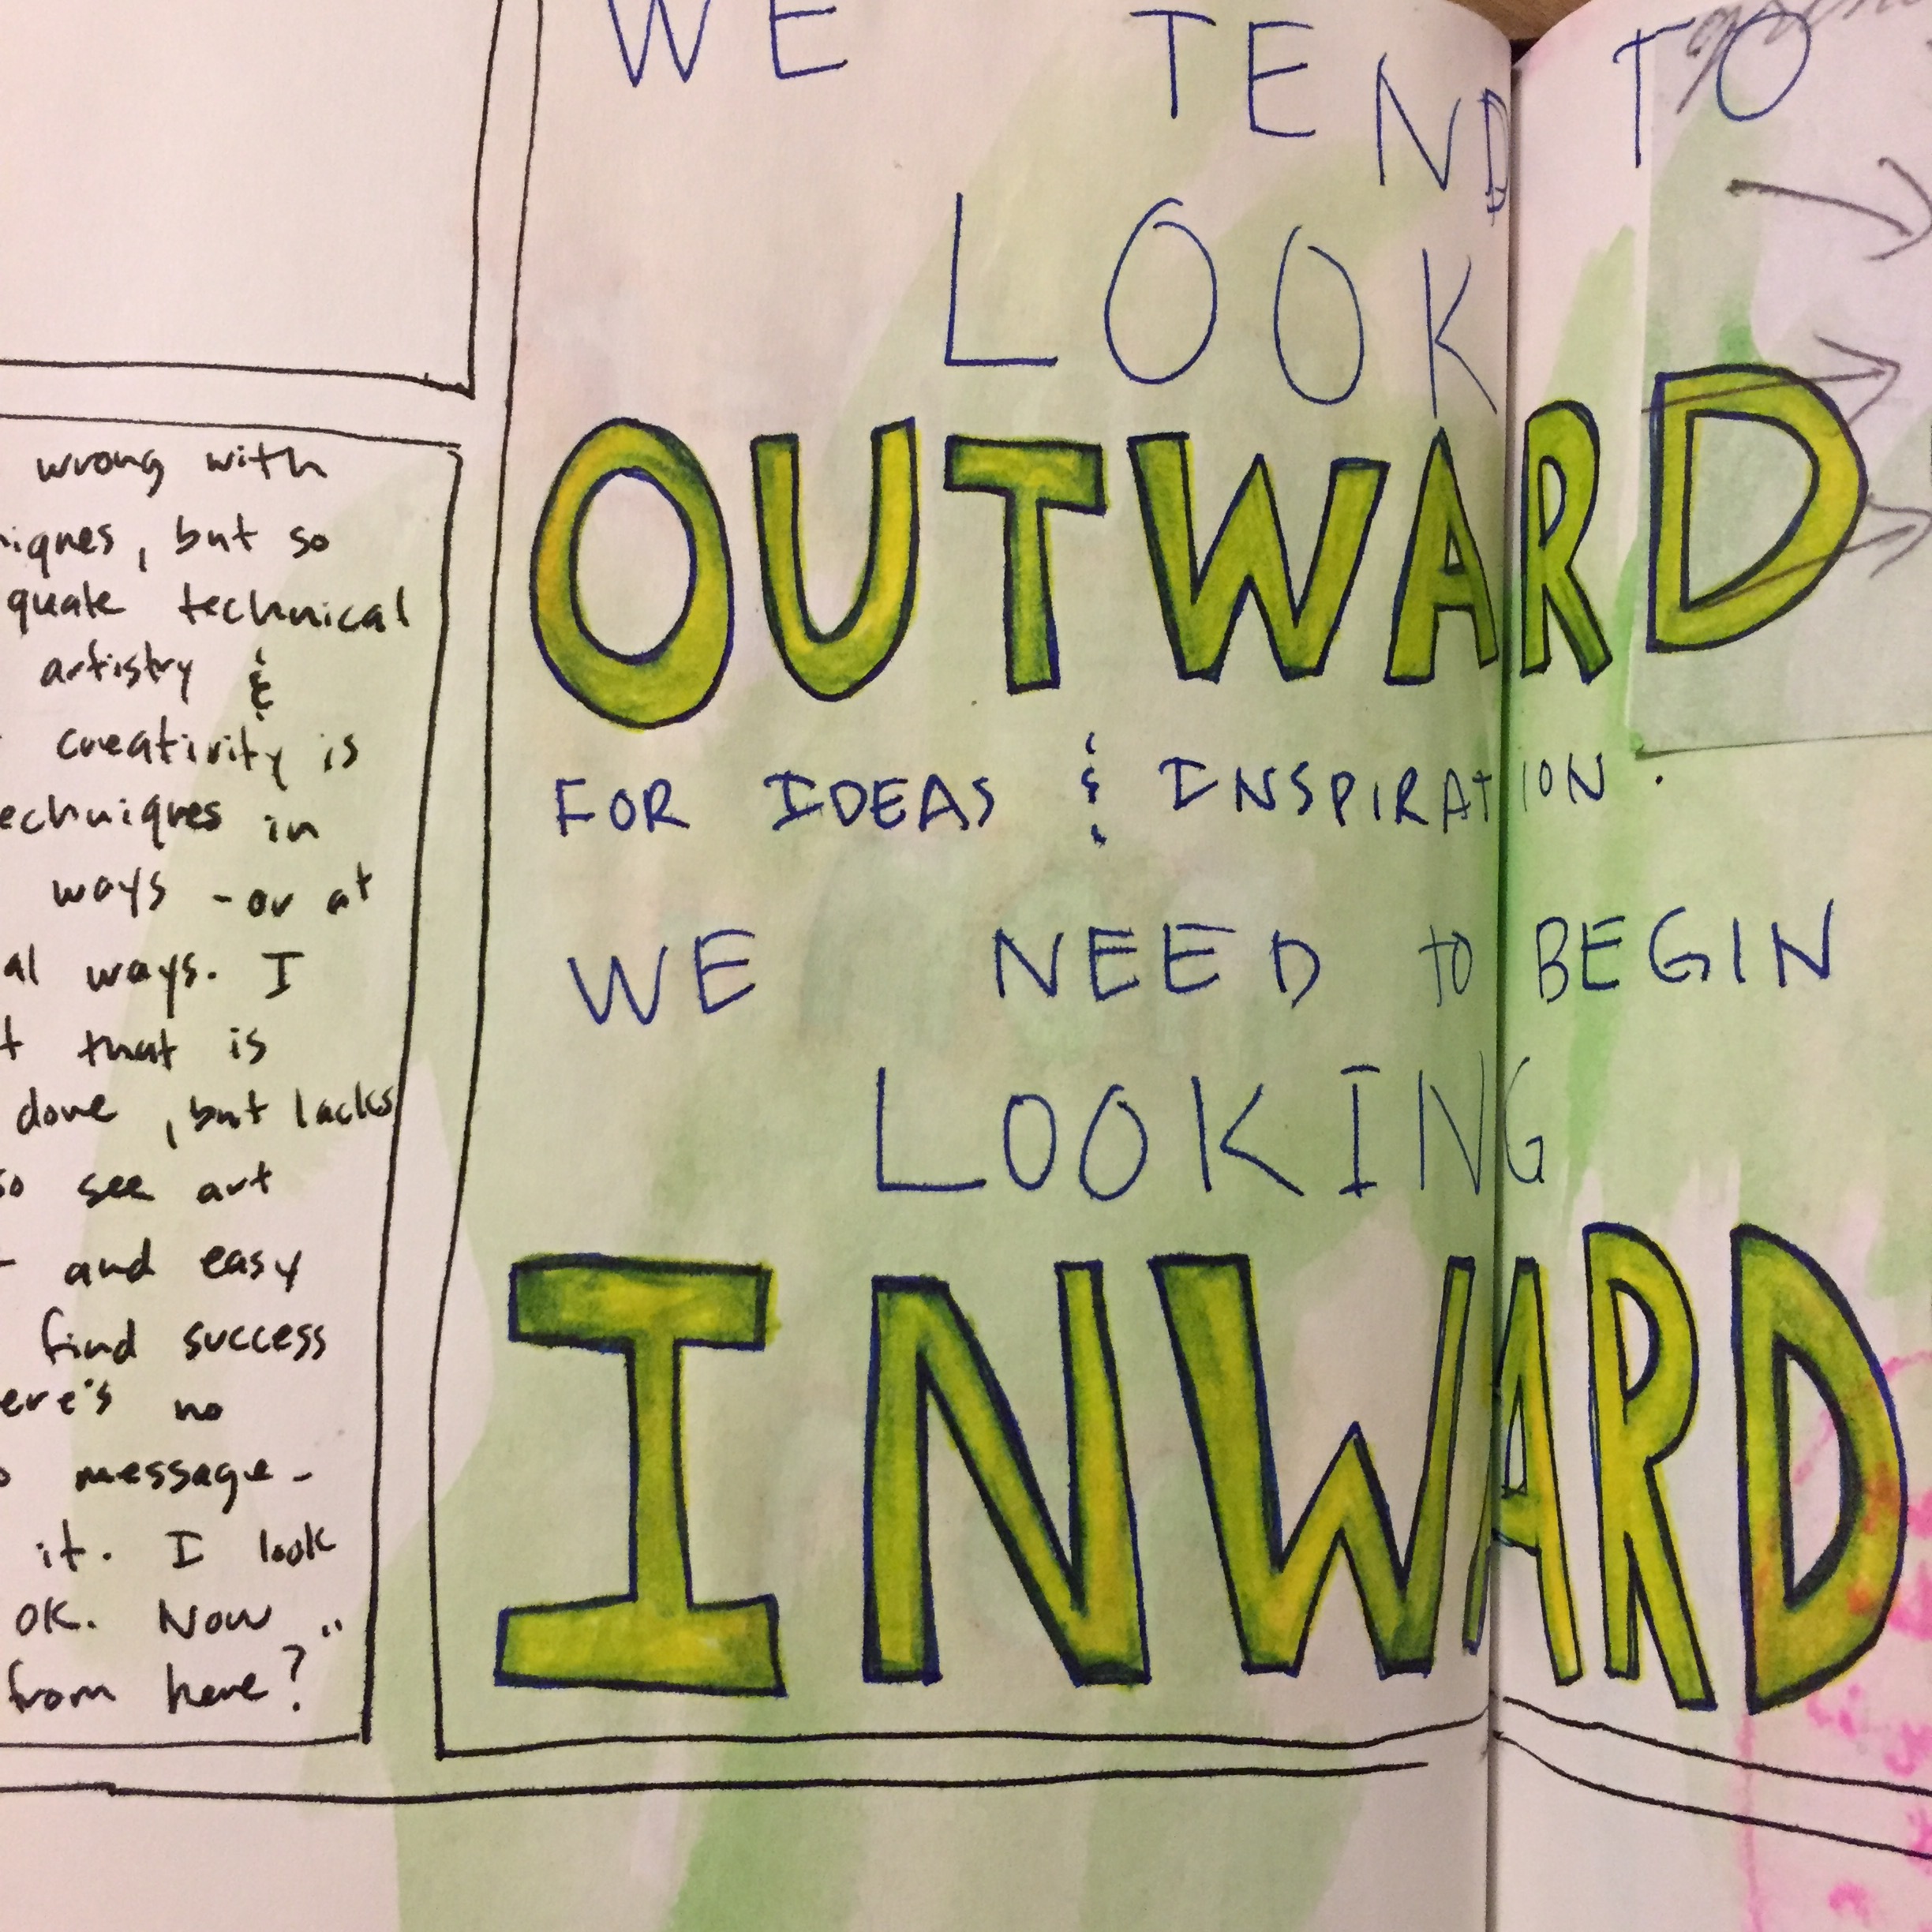 wrong with
iques, but so
quate technical
artistry &
creativity is
echniques in
ways - or at
al ways. I
t that is
done, but lacks
so see art
and easy
find success
ere's no
message -
it. I look
OK. Now
from here?"
WE TEND TO
LOOK
OUTWARD
FOR IDEAS & INSPIRATION.
WE NEED TO BEGIN
LOOKING
INWARD